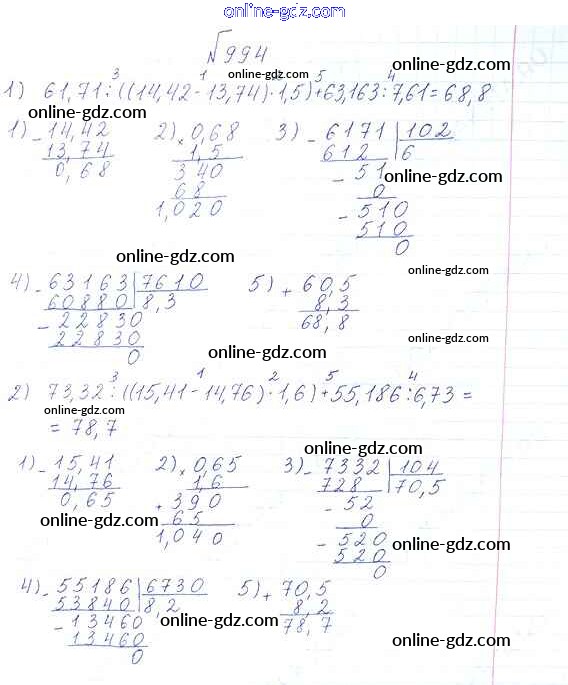 online-gdz.com
№994
1) 61,71 : ((14,42 - 13,74) · 1,5) + 63,163 : 7,61 = 68,8
3 1 2 5 4
online-gdz.com
online-gdz.com
1) - 14,42
13,74
0,68
2) × 0,68
1,5
340
68
1,020
3) - 6171 | 102
612 6
- 51
0
- 510
510
0
online-gdz.com
online-gdz.com
online-gdz.com
4) - 63163 | 7610
60880 8,3
- 22830
22830
0
5) + 60,5
8,3
68,8
online-gdz.com
online-gdz.com
2) 73,32 : ((15,41 - 14,76) · 1,6) + 55,186 : 6,73 =
3 1 2 5 4
= 78,7
online-gdz.com
online-gdz.com
online-gdz.com
1) - 15,41
14,76
0,65
2) × 0,65
1,6
+ 390
65
1,040
3) - 7332 | 104
728 70,5
- 52
0
- 520
520
0
online-gdz.com
online-gdz.com
4) - 55186 | 6730
53840 8,2
- 13460
13460
0
5) + 70,5
8,2
78,7
online-gdz.com
online-gdz.com